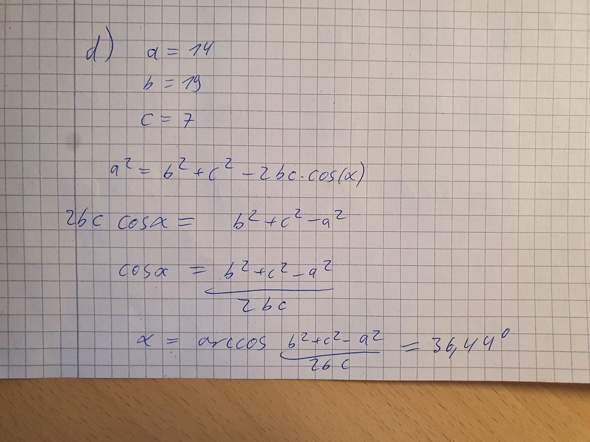 d) a = 14
b = 19
c = 7
a² = b² + c² - 2bc · cos(α)
2bc cosα = b² + c² - a²
cosα = b² + c² - a² / 2bc
α = arccos b² + c² - a² / 2bc = 36,44°